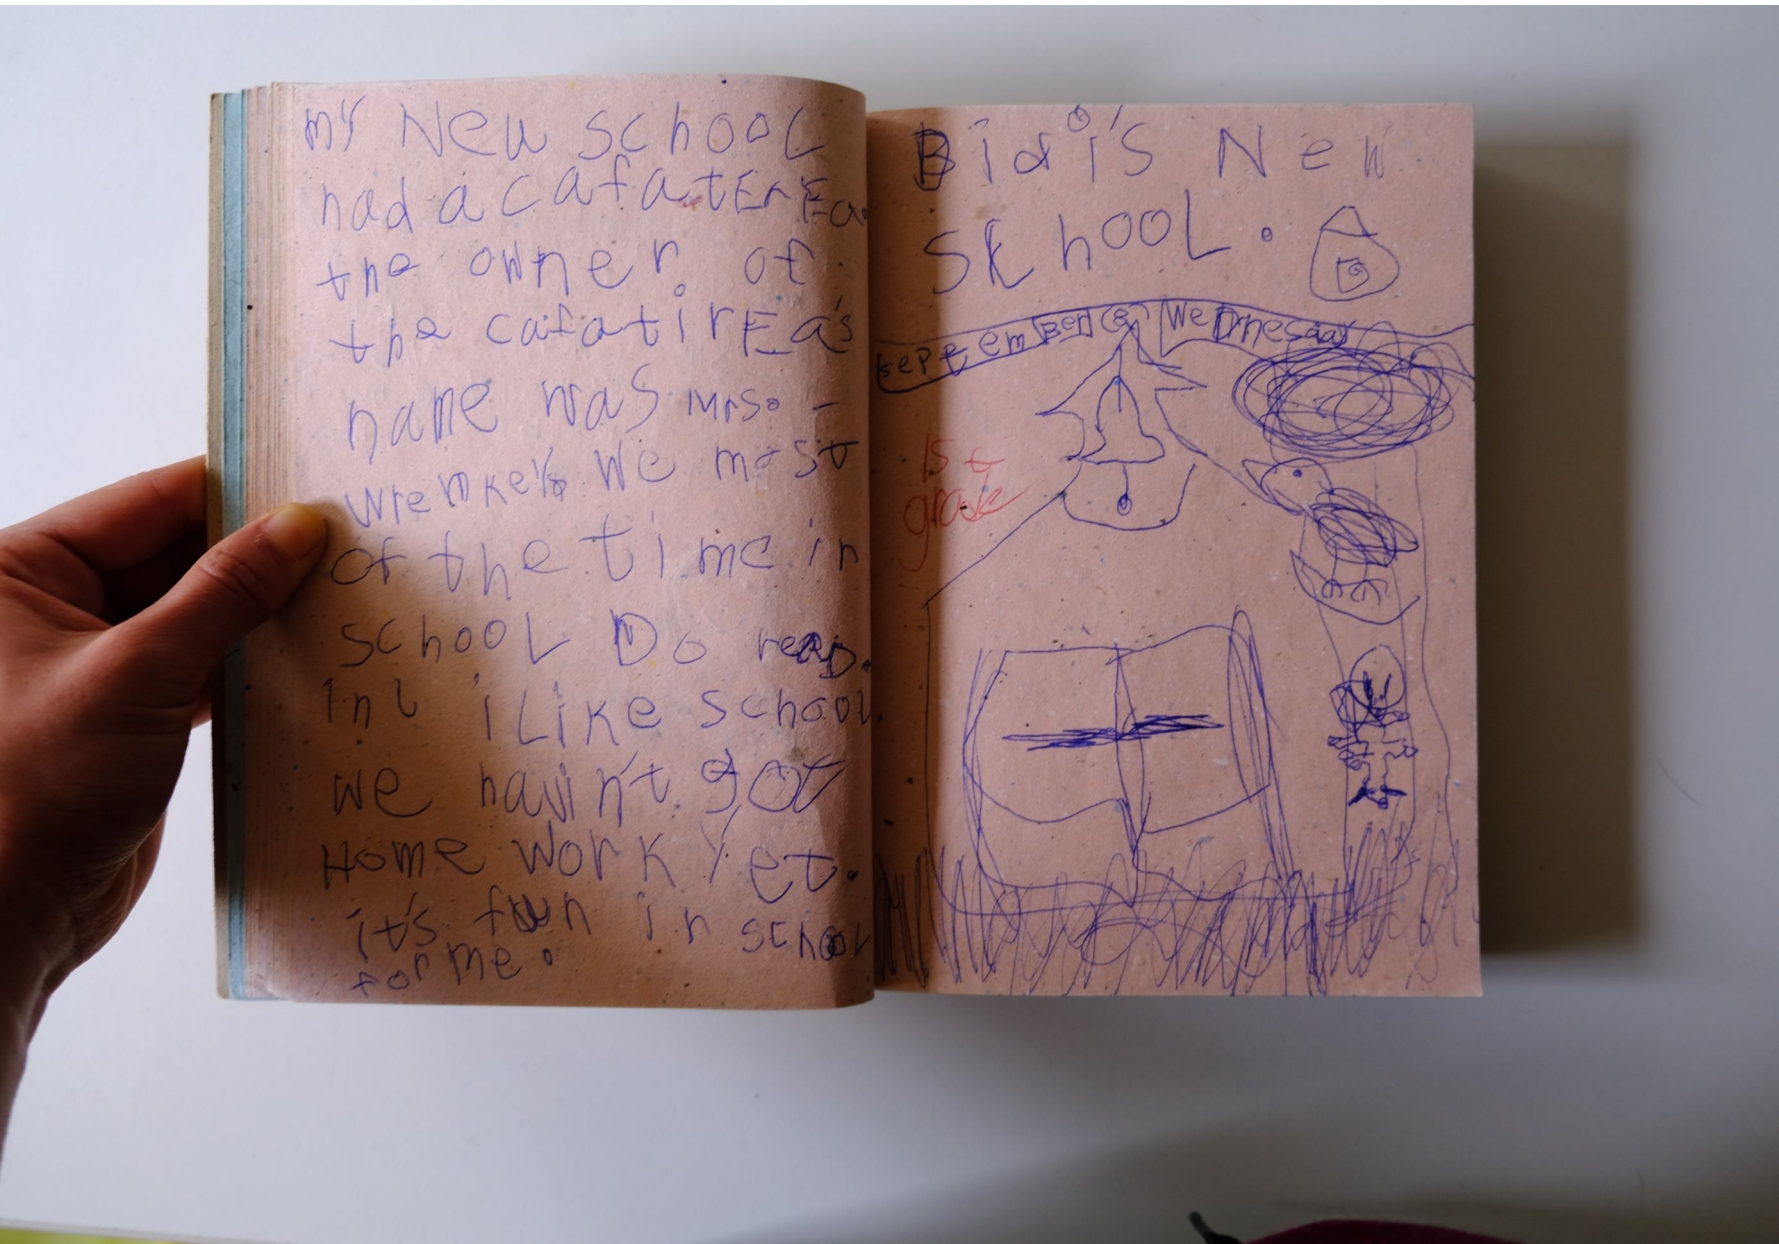 my New school
had a cafatErEa.
the owner of
the cafatirEa's
name was Mrs. -
We most
of the time in
school Do reaD.
InL i Like school.
we havin't got
Home work yet.
it's fun in school
for me.
Bidi's New
SkhooL.
september 8 WeDnesday
1st
grade